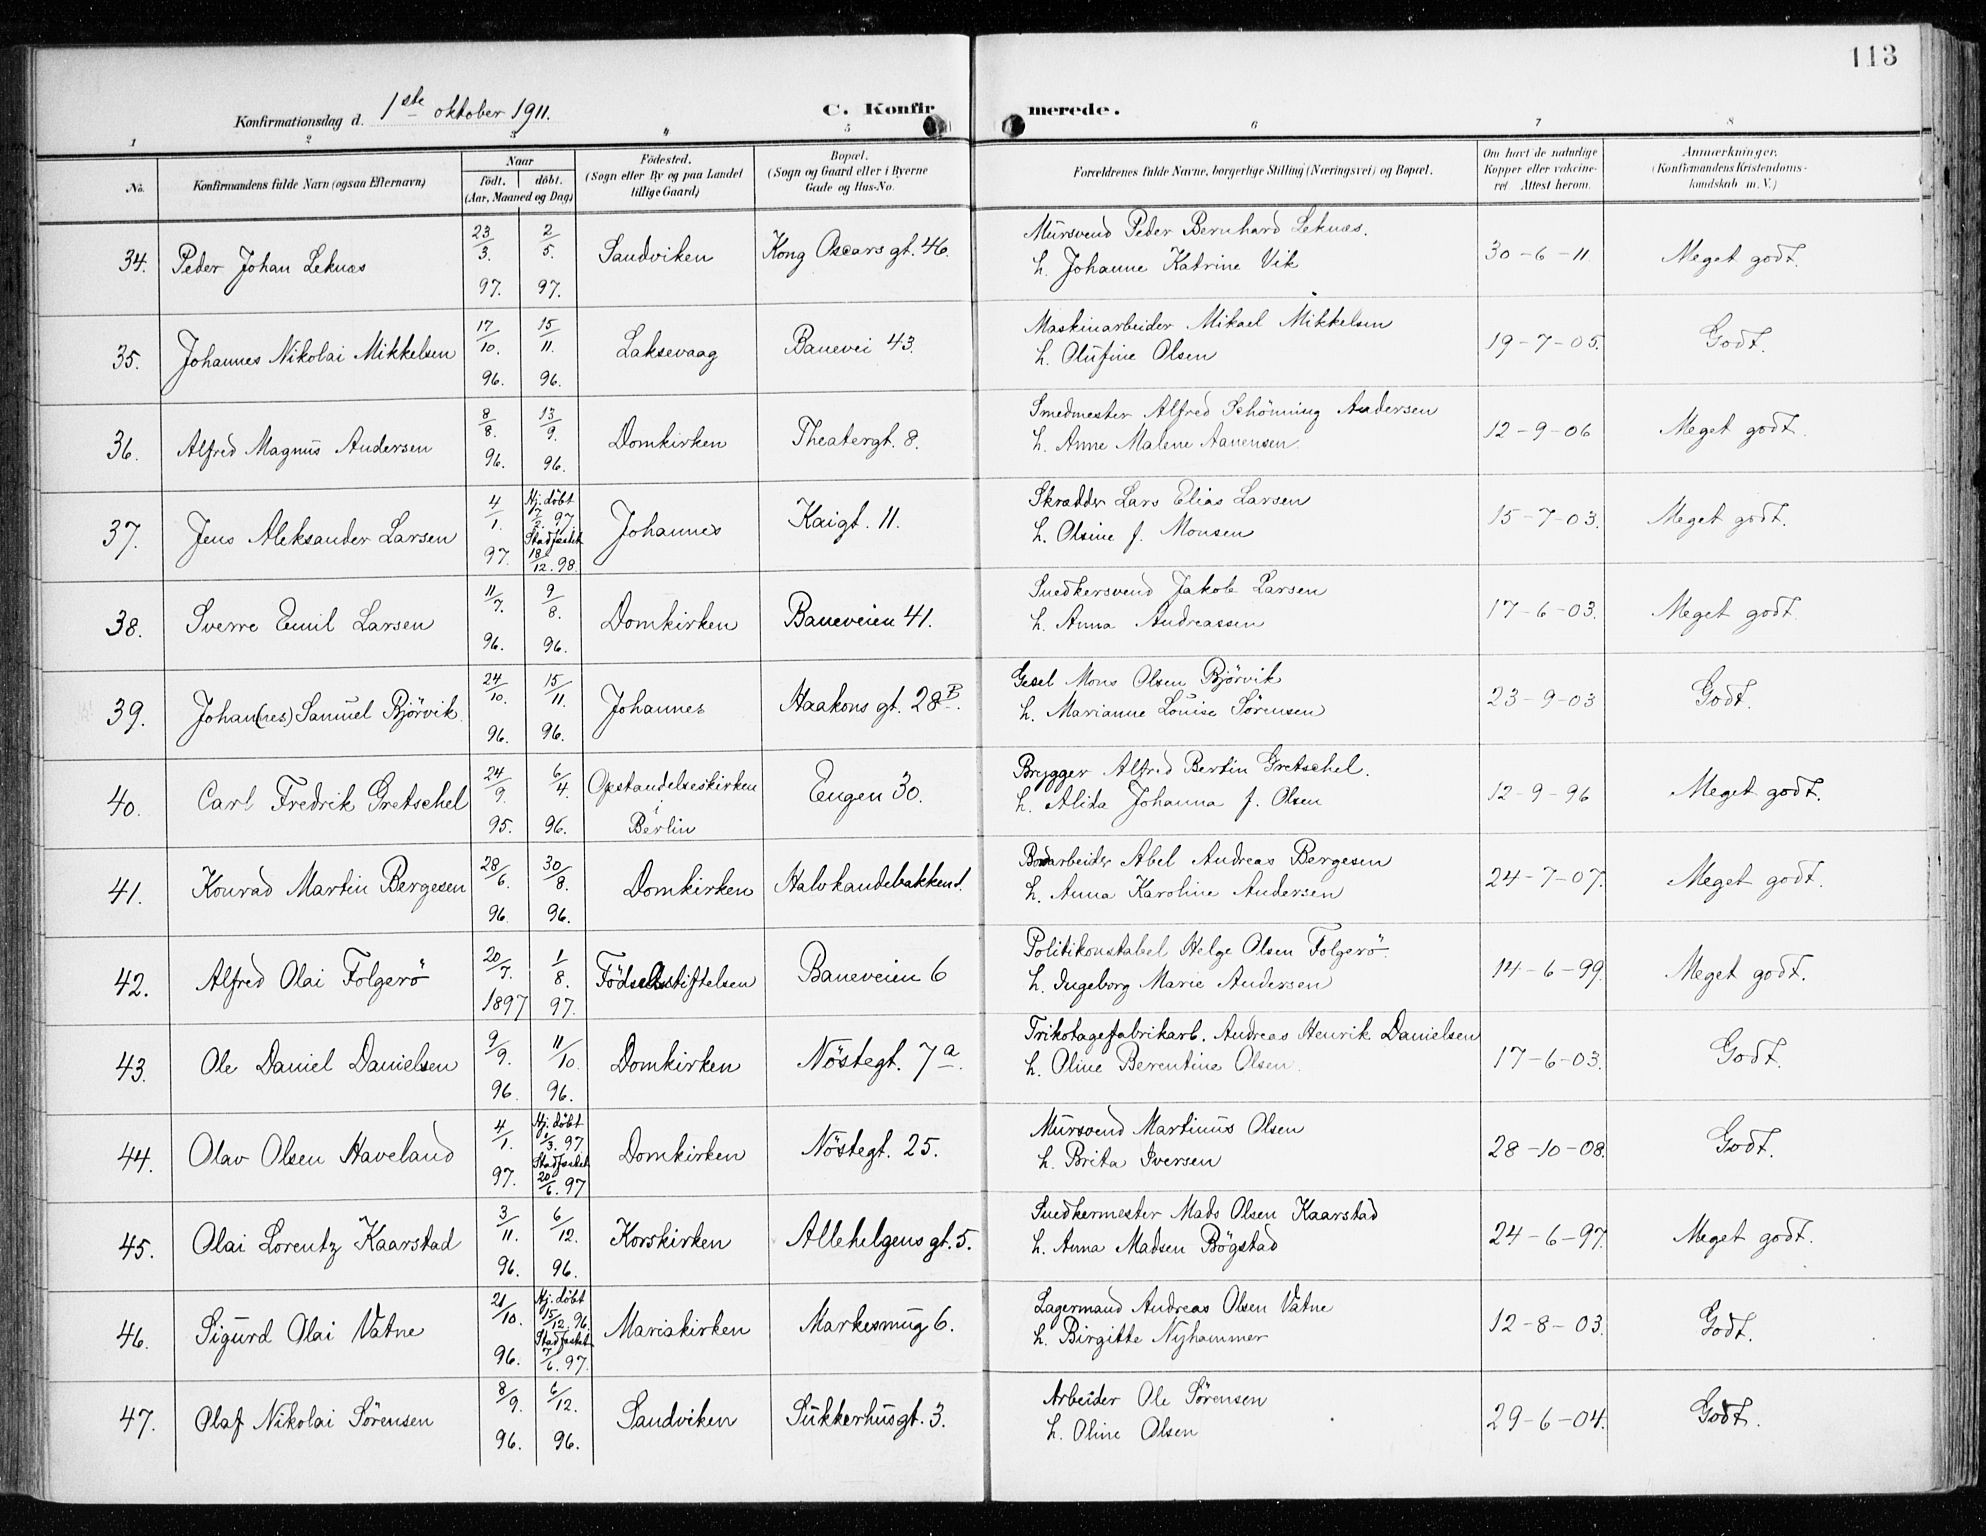 113
Konfirmationsdag d. 1ste oktober 1911.
C. Konfirmerede.
1 2 3 4 5 6 7 8
No. Konfirmandens fulde Navn (ogsaa Efternavn)
Naar
födt. döbt.
(Aar, Maaned og Dag)
Födested.
(Sogn eller By og paa Landet
tillige Gaard)
Bopæl.
(Sogn og Gaard eller i Byerne
Gade og Hus-No.
Forældrenes fulde Navne, borgerlige Stilling (Næringsvei) og Bopæl.
Om havt de naturlige
Kopper eller vakcine-
ret Attest herom.
Anmærkninger.
(Konfirmandens Kristendoms-
kundskab m. V.)
34. Peder Johan Leknes 23/3. 97. 2/5. 97. Sandviken Kong Oscars gt. 46.
Mursvend Peder Bernhard Leknes.
h. Johanne Katrine Vik
30-6-11 Meget godt.
35. Johannes Nikolai Mikkelsen 17/10. 96. 15/11. 96. Laksevaag Banevei 43.
Maskinarbeider Mikael Mikkelsen
h. Olufine Olsen
19-7-05. Godt.
36. Alfred Magnus Andersen 8/8. 96. 13/9. 96. Domkirken Theatergt. 8.
Smedmester Alfred Schönning Andersen
h. Anne Malene Aanensen.
12-9-06 Meget godt.
37. Jens Aleksander Larsen 4/1. 97. Hj. döbt 7/2. 97 Stadfæstet 18/12. 98. Johannes Kaigt. 11.
Skrædder Lars Elias Larsen
h. Olsine f. Monsen
15-7-03. Meget godt.
38. Sverre Emil Larsen 11/7. 96. 9/8. 96. Domkirken Baneveien 41.
Snedkersvend Jakob Larsen
h. Anna Andreassen
17-6-03. Meget godt.
39. Johan(nes) Samuel Björvik. 24/10. 96. 15/11. 96. Johannes Haakons gt. 28B.
Gesel Mons Olsen Björvik
h. Marianne Louise Sörensen
23-9-03 Godt.
40. Carl Fredrik Gretschel 24/9. 95. 6/4. 96. Opstandelseskirken i Berlin Engen 30.
Brygger Alfred Bertin Gretschel.
h. Alida Johanna f. Olsen
12-9-96 Meget godt.
41. Konrad Martin Bergesen 28/6. 96. 30/8. 96. Domkirken Halvkandebakken 1.
Bodarbeider Abel Andreas Bergesen
h. Anna Karoline Andersen
24-7-07. Meget godt.
42. Alfred Olai Folgerö 20/7. 1897 1/8. 97. Födselsstiftelsen Baneveien 6
Politikonstabel Helge Olsen Folgerö.
h. Ingeborg Marie Andersen
14-6-99. Meget godt.
43. Ole Daniel Danielsen 9/9. 96 11/10. 96. Domkirken Nöstegt. 7a.
Trikotagefabrikarb. Andreas Henrik Danielsen
h. Oline Berentine Olsen.
17-6-03. Godt.
44. Olav Olsen Haveland 4/1. 97. Hj. döbt 1/3. 97 Stadfæstet 20/6. 97 Domkirken Nöstegt. 25.
Mursvend Martinus Olsen
h. Brita Iversen
28-10-08. Godt.
45. Olai Lorentz Kaarstad 3/11. 96. 6/12. 96. Korskirken Allehelgens gt. 5.
Snedkermester Mads Olsen Kaarstad
h. Anna Madsen Bögstad
24-6-97. Meget godt.
46. Sigurd Olai Vatne 21/10. 96. Hj. döbt 15/12. 96. Stadfæstet 7/6. 97. Mariakirken Markesmug 6.
Lagermand Andreas Olsen Vatne
h. Birgitte Nyhammer
12-8-03. Godt.
47. Olaf Nikolai Sörensen 8/9. 96. 6/12. 96. Sandviken Sukkerhusgt. 3.
Arbeider Ole Sörensen
h. Oline Olsen
29-6-04. Godt.